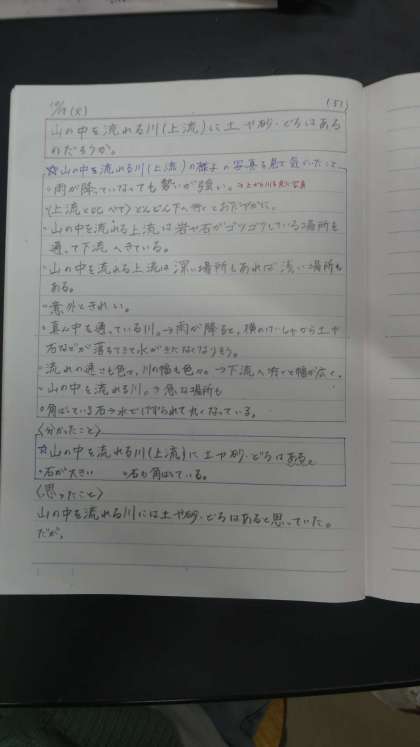 (5)
山の中を流れる川(上流)に土や砂・どろはあるのだろうか。
☆山の中を流れる川(上流)の様子の写真を見て気づいたこと
・雨が降っていなくても勢いが強い。
(上流と比べて)どんどん下へ行くとおだやかに。
・山の中を流れる上流は岩や石がゴツゴツしている場所も
通って下流へきている。
・山の中を流れる上流は深い場所もあれば浅い場所も
ある。
・意外ときれい。
・真ん中を通っている川。→雨が降ると、横の から土や
石などが落ちてきて水がきたなくなりそう。
・流れの速さも色々、川の幅も色々。→下流へ行くと幅が広く。
・山の中を流れる川。→急な場所も
・角ばっている石→水でけずられて丸くなっている。
<分かったこと>
☆山の中を流れる川(上流)に土や砂・どろは
・石が大きい ・石も角ばっている。
<思ったこと>
山の中を流れる川には土や砂・どろはあると思っていた。
だが、